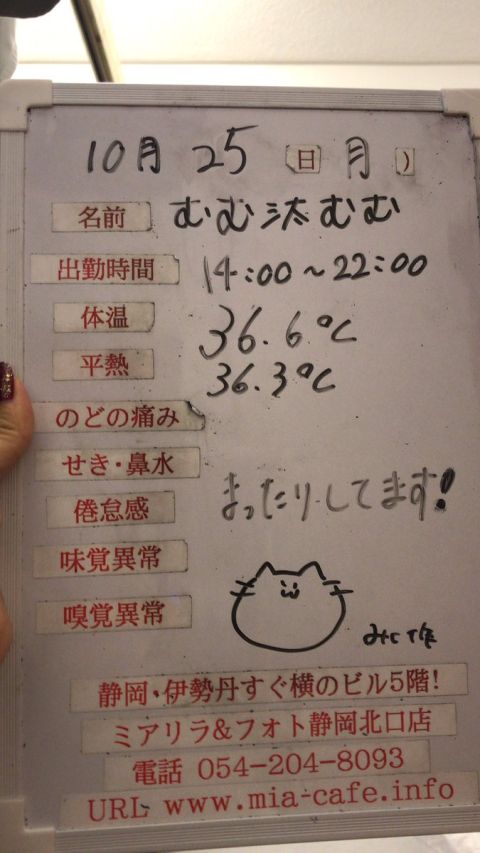 10月 25 (日 月 )
名前 むむ汰むむ
出勤時間 14:00~22:00
体温 36.6℃
平熱 36.3℃
のどの痛み
せき・鼻水
倦怠感 まったりしてます!
味覚異常
嗅覚異常
作
静岡・伊勢丹すぐ横のビル5階!
ミアリラ&フォト静岡北口店
電話 054-204-8093
URL www.mia-cafe.info